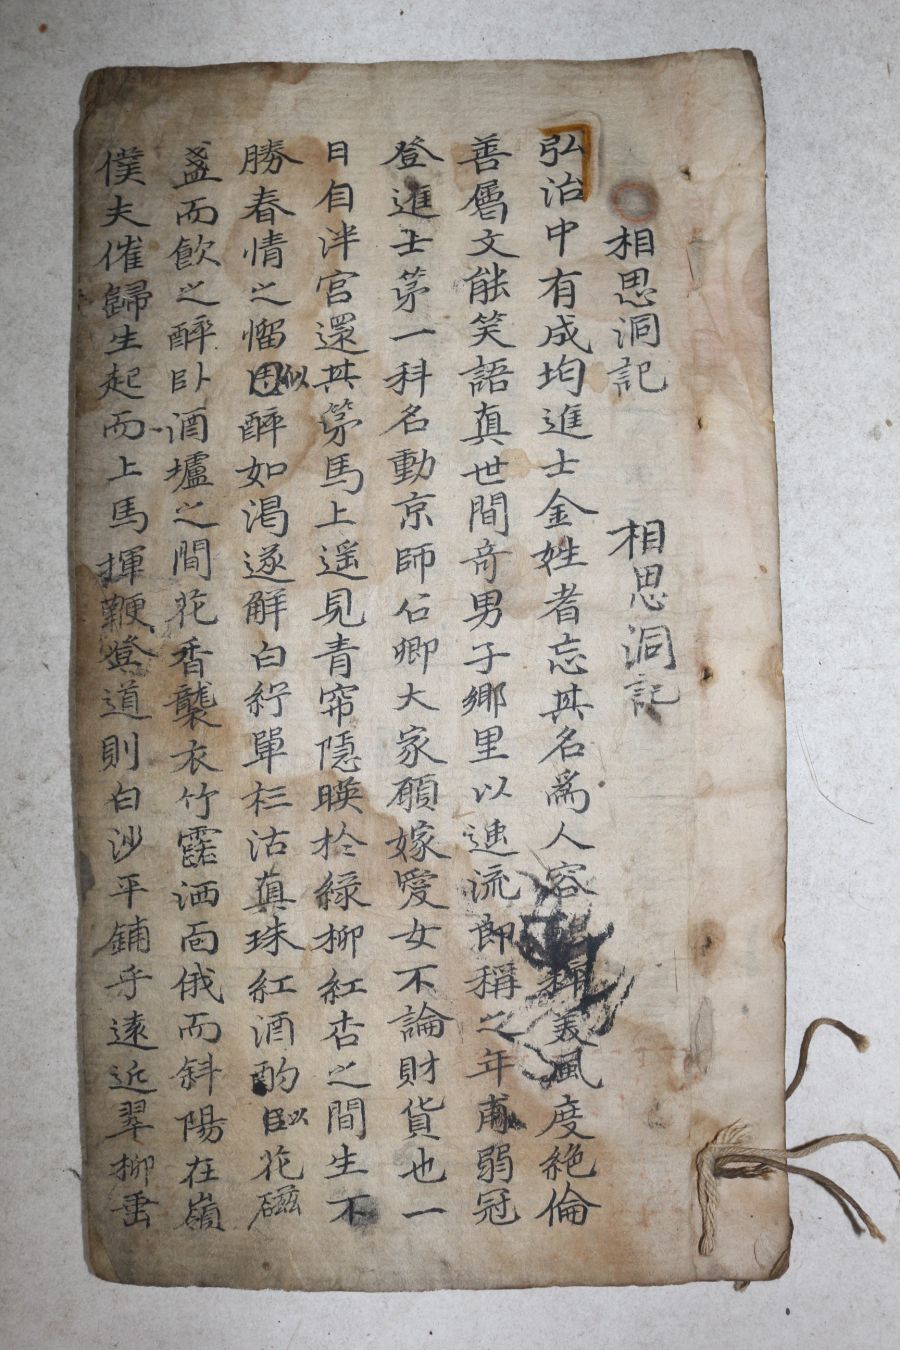 相思洞記 相思洞記
弘治中有成均進士金姓者忘其名爲人容 美風度絶倫
善屬文能笑語真世間奇男子鄉里以連流郎稱之年甫弱冠
登進士第一科名動京師公卿大家願嫁愛女不論財貨也一
日自泮宮還其第馬上遥見青帘隱暎於綠柳紅杏之間生不
勝春情之慆 似醉如渴遂解白紵單衫沽真珠紅酒酌以花磁
盞而飮之醉卧酒壚之間花香襲衣竹露洒面俄而斜陽在嶺
僕夫催歸生起而上馬揮鞭登道則白沙平鋪乎遠近翠柳垂